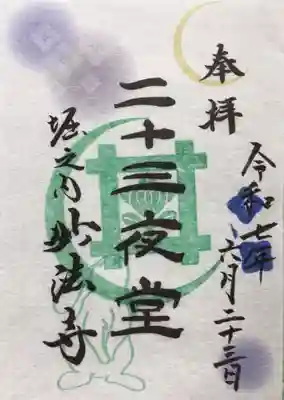 奉拝
令和七年六月二十三日
二十三夜堂
堀之内妙法寺